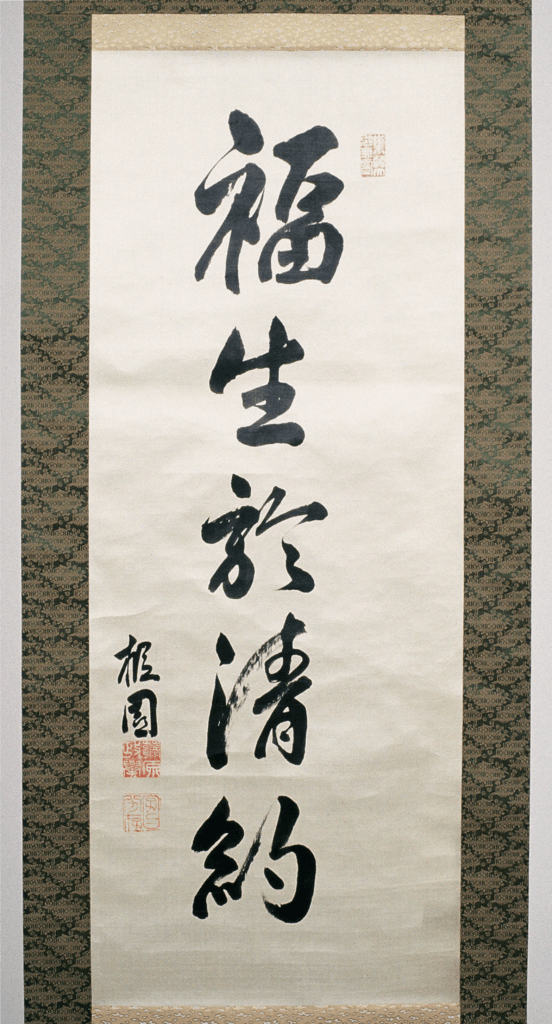 福生於清約
園